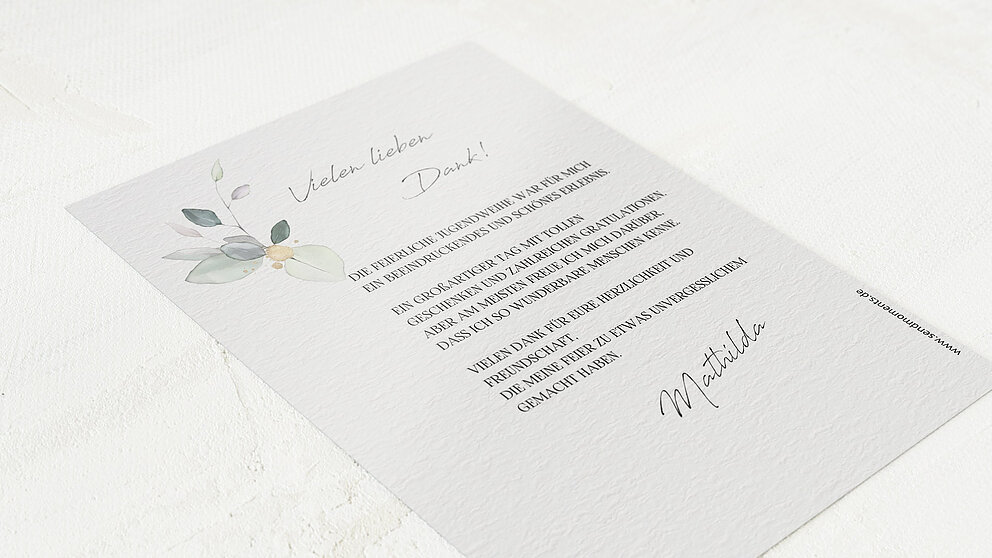 Vielen lieben
Dank!
DIE FEIERLICHE JUGENDWEIHE WAR FÜR MICH
EIN BEEINDRUCKENDES UND SCHÖNES ERLEBNIS.
EIN GROẞARTIGER TAG MIT TOLLEN
GESCHENKEN UND ZAHLREICHEN GRATULATIONEN.
ABER AM MEISTEN FREUE ICH MICH DARÜBER,
DASS ICH SO WUNDERBARE MENSCHEN KENNE.
VIELEN DANK FÜR EURE HERZLICHKEIT UND
FREUNDSCHAFT.
DIE MEINE FEIER ZU ETWAS UNVERGESSLICHEM
GEMACHT HABEN.
Mathilda
www.sendmoments.de